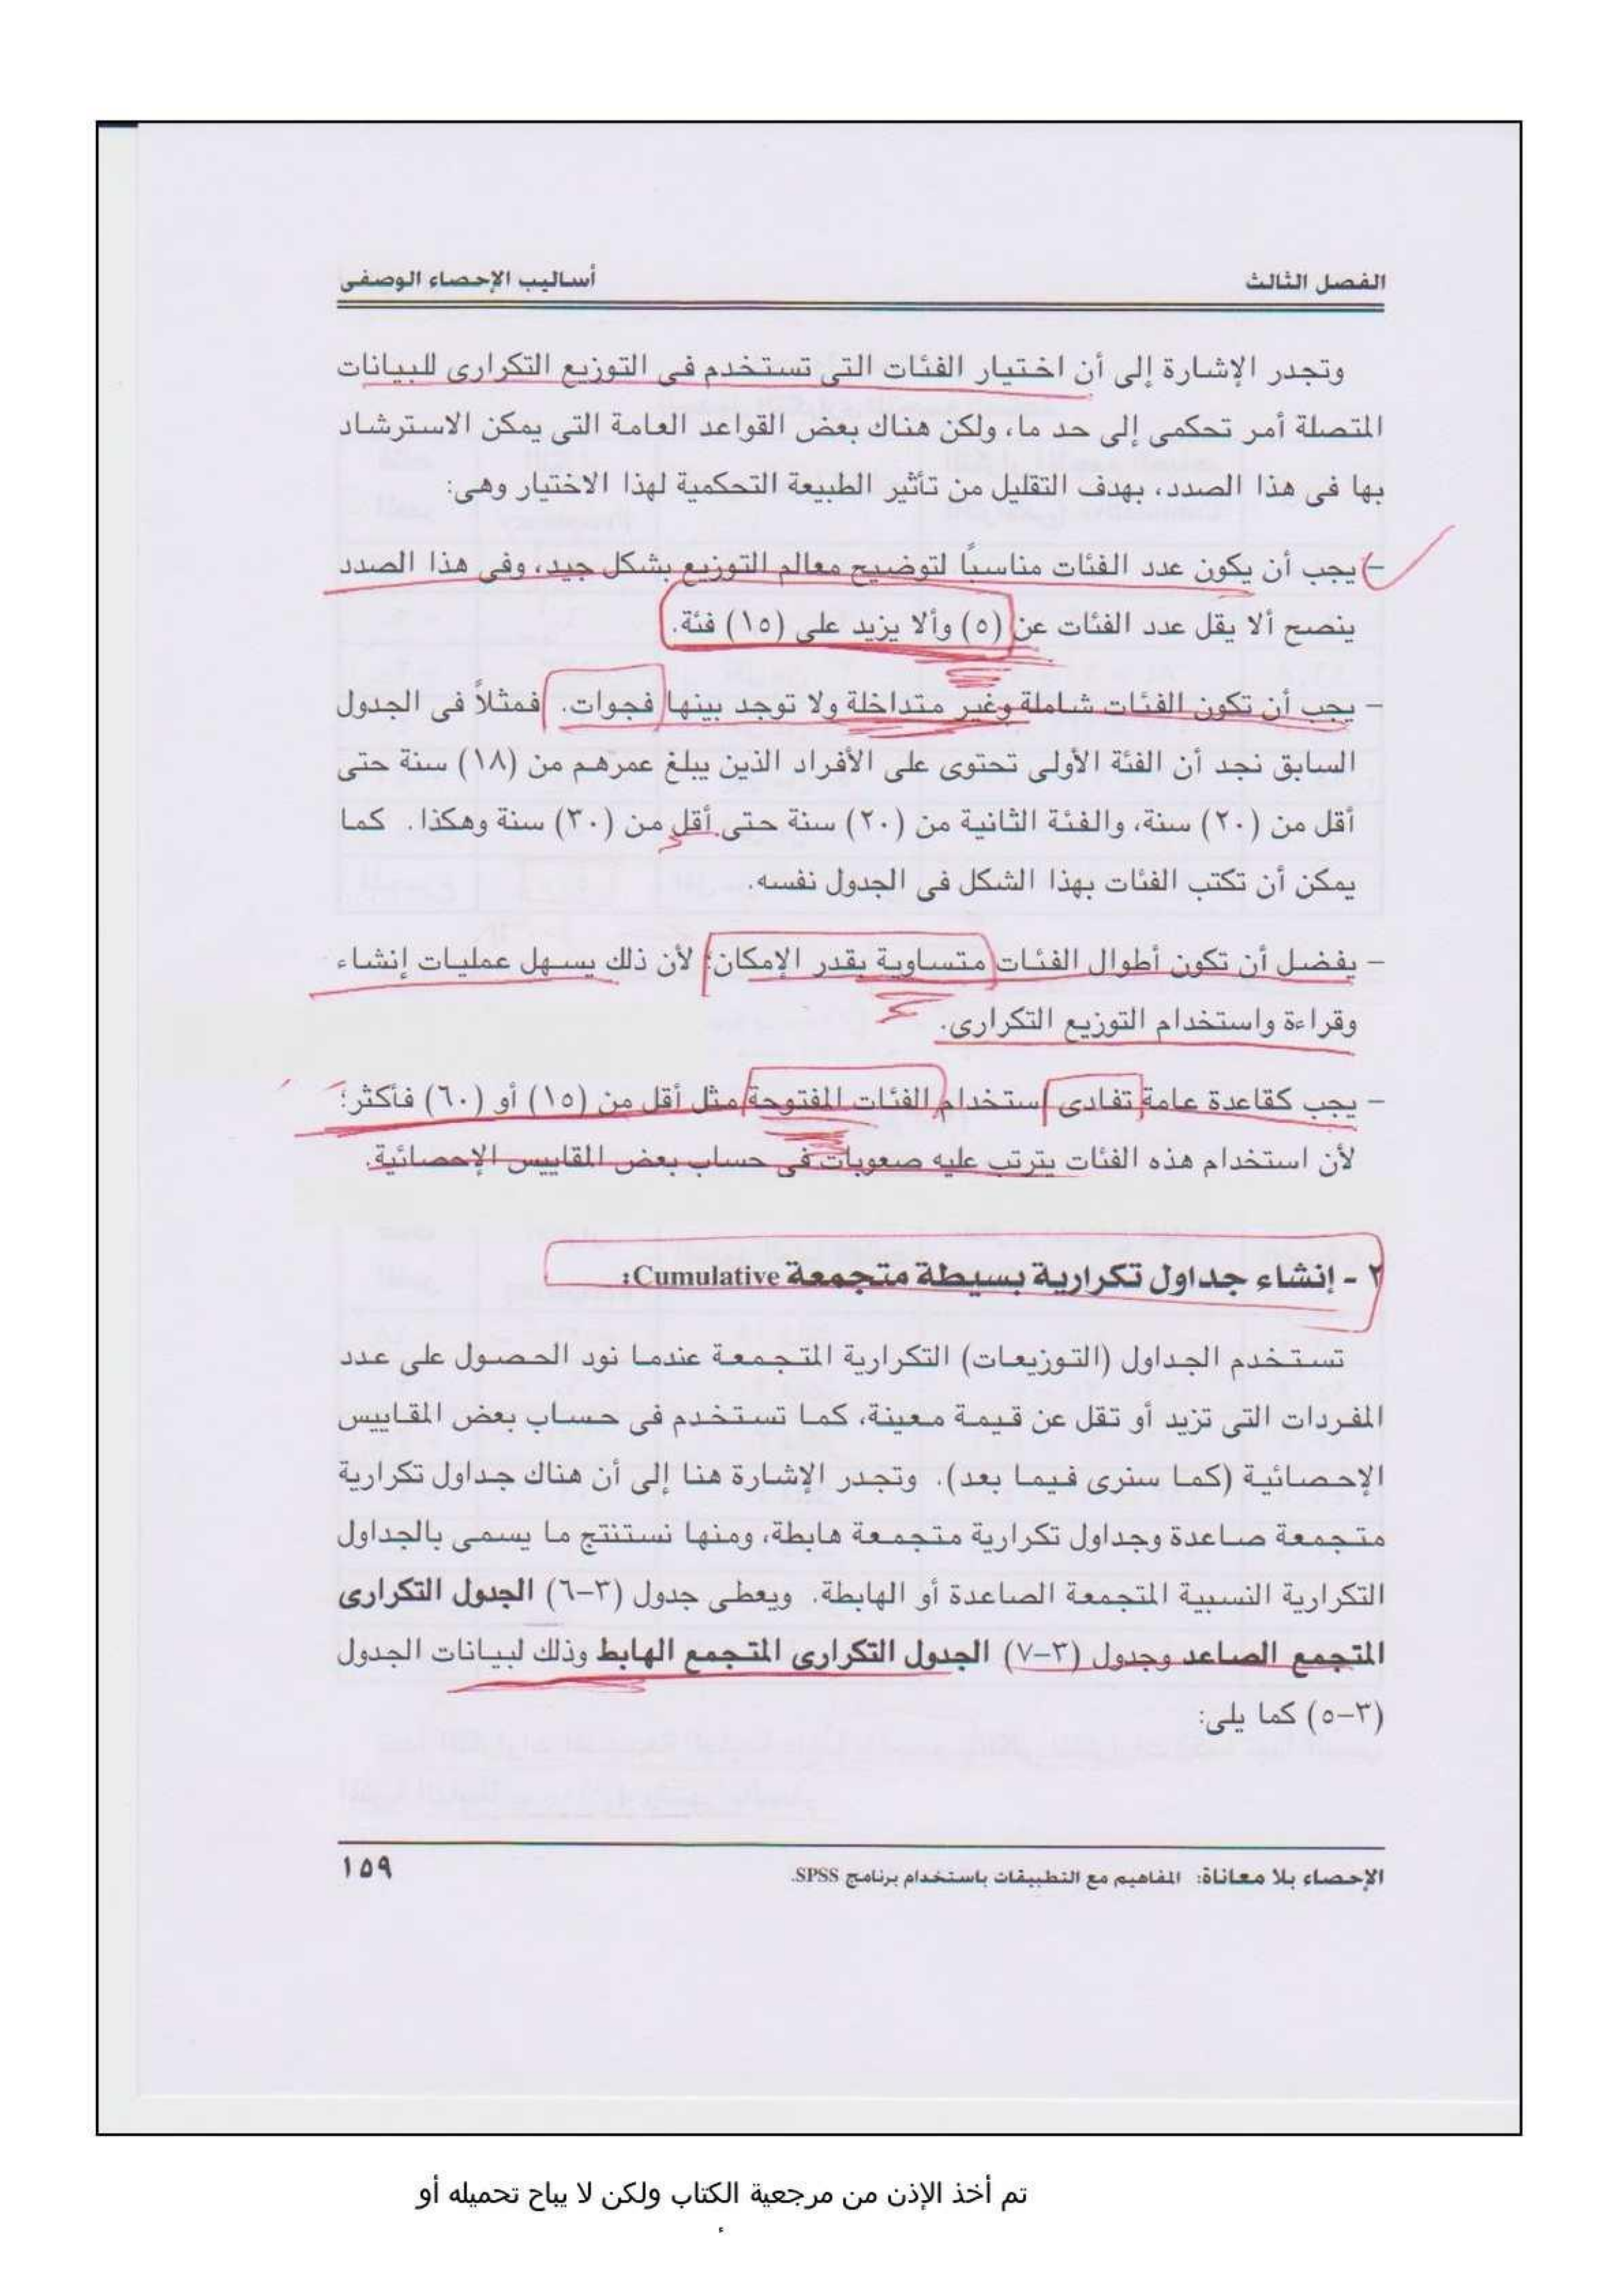 الفصل الثالث
أساليب الإحصاء الوصفى
وتجدر الإشارة إلى أن اختيار الفئات التى تستخدم فى التوزيع التكرارى للبيانات
المتصلة أمر تحكمى إلى حد ما، ولكن هناك بعض القواعد العامة التى يمكن الاسترشاد
بها فى هذا الصدد، بهدف التقليل من تأثير الطبيعة التحكمية لهذا الاختيار وهى:
- يجب أن يكون عدد الفئات مناسبًا لتوضيح معالم التوزيع بشكل جيد، وفى هذا الصدد
ينصح ألا يقل عدد الفئات عن (٥) وألا يزيد على (١٥) فئة.
- يجب أن تكون الفئات شاملة وغير متداخلة ولا توجد بينها فجوات. فمثلاً فى الجدول
السابق نجد أن الفئة الأولى تحتوى على الأفراد الذين يبلغ عمرهم من (١٨) سنة حتى
أقل من (٢٠) سنة، والفئة الثانية من (٢٠) سنة حتى أقل من (٣٠) سنة وهكذا. كما
يمكن أن تكتب الفئات بهذا الشكل فى الجدول نفسه.
- يفضل أن تكون أطوال الفئات متساوية بقدر الإمكان؛ لأن ذلك يسهل عمليات إنشاء
وقراءة واستخدام التوزيع التكرارى.
- يجب كقاعدة عامة تفادى استخدام الفئات المفتوحة مثل أقل من (١٥) أو (٦٠) فأكثر؛
لأن استخدام هذه الفئات يترتب عليه صعوبات فى حساب بعض المقاييس الإحصائية.
٢ - إنشاء جداول تكرارية بسيطة متجمعة Cumulative:
تستخدم الجداول (التوزيعات) التكرارية المتجمعة عندما نود الحصول على عدد
المفردات التى تزيد أو تقل عن قيمة معينة، كما تستخدم فى حساب بعض المقاييس
الإحصائية (كما سنرى فيما بعد). وتجدر الإشارة هنا إلى أن هناك جداول تكرارية
متجمعة صاعدة وجداول تكرارية متجمعة هابطة، ومنها نستنتج ما يسمى بالجداول
التكرارية النسبية المتجمعة الصاعدة أو الهابطة. ويعطى جدول (٣-٦) الجدول التكرارى
المتجمع الصاعد وجدول (٣-٧) الجدول التكرارى المتجمع الهابط وذلك لبيانات الجدول
(٣-٥) كما يلى:
الإحصاء بلا معاناة: المفاهيم مع التطبيقات باستخدام برنامج SPSS.
١٥٩
تم أخذ الإذن من مرجعية الكتاب ولكن لا يباح تحميله أو